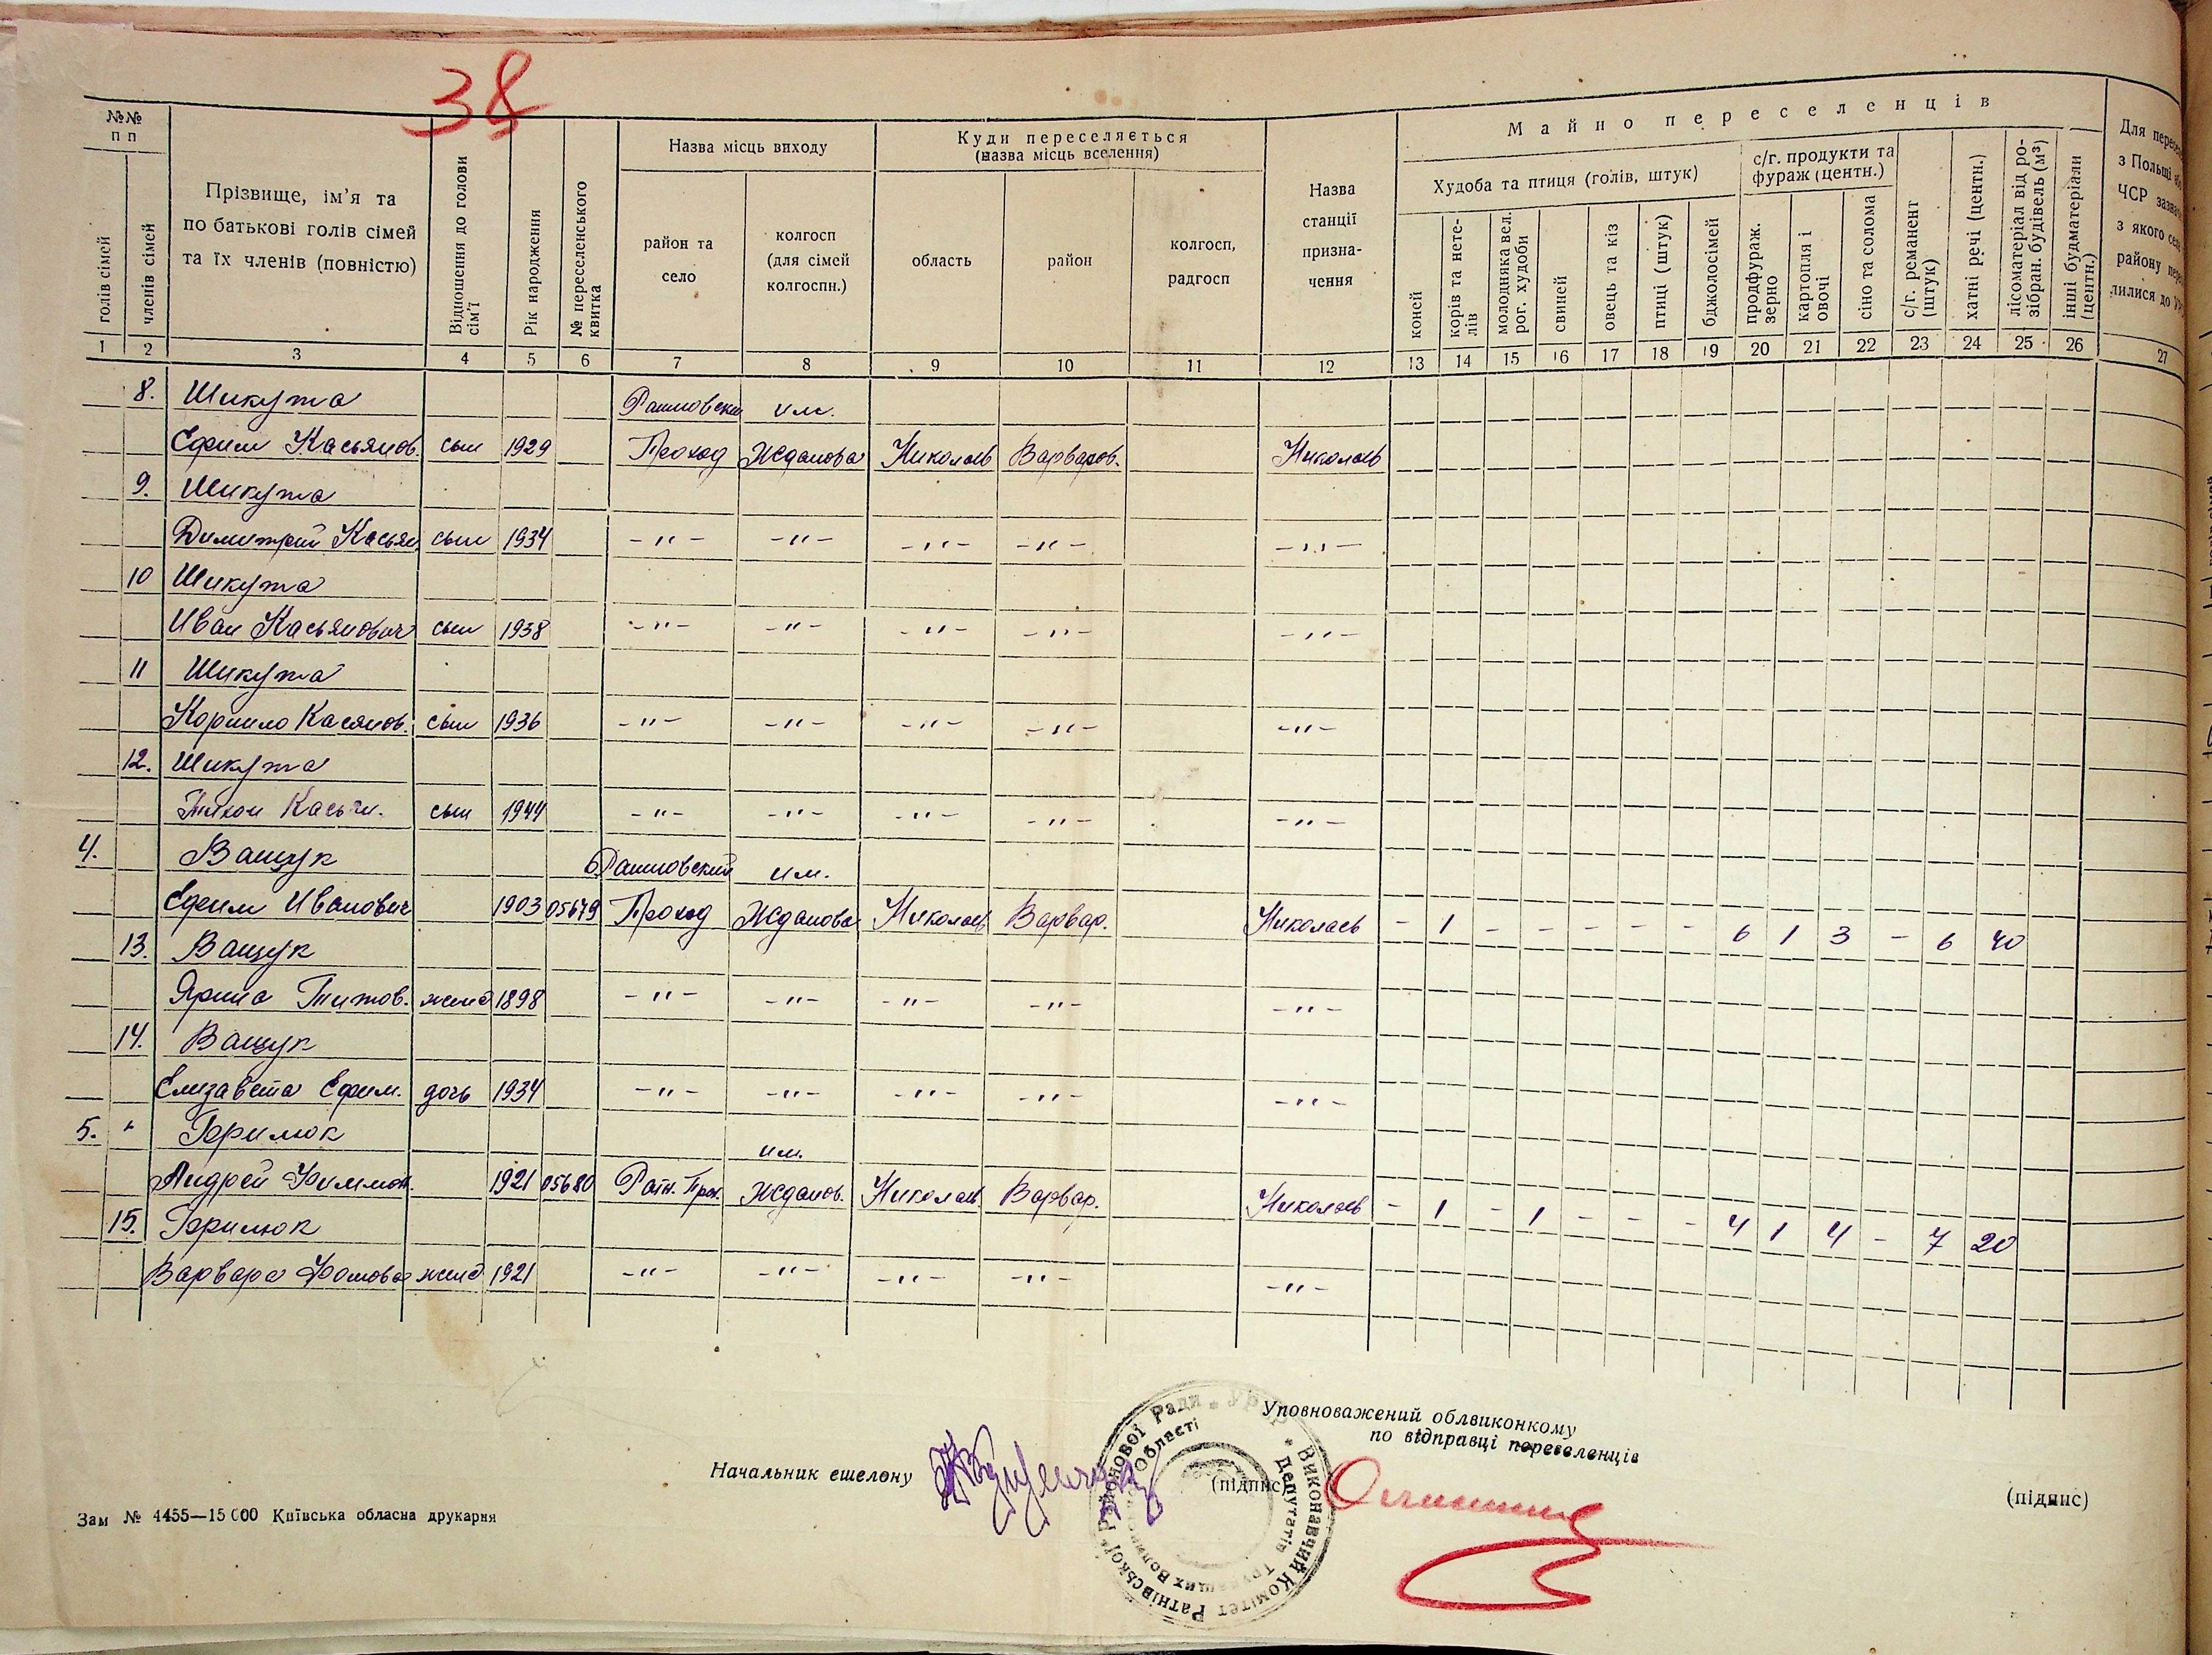 38
№№ п п
голів сімей
членів сімей
Прізвище, ім'я та по батькові голів сімей та їх членів (повністю)
Відношення до голови сім'ї
Рік народження
№ переселенського квитка
Назва місць виходу
район та село
колгосп (для сімей колгоспн.)
Куди переселяється (назва місць вселення)
область
район
колгосп, радгосп
Назва станції призна-чення
Майно переселенців
Худоба та птиця (голів, штук)
коней
корів та нете-лів
молодняка вел. рог. худоби
свиней
овець та кіз
птиці (штук)
бджолосімей
с/г. продукти та фураж (центн.)
продфураж. зерно
картопля і овочі
сіно та солома
с/г. реманент (штук)
хатні речі (центн.)
лісоматеріал від ро-зібран. будівель (м³)
інші будматеріали (центн.)
Для
з Польщі
ЧСР
з якого
району
лилися до
1 2 3 4 5 6 7 8 9 10 11 12 13 14 15 16 17 18 19 20 21 22 23 24 25 26 27
8. Шикута Ратновский им.
Ефим Касьянов. сын 1929 Проход Жданова Николаев Варваров. Николаев
9. Шикута
Димитрий Касьян сын 1934 -"- -"- -"- -"- -"-
10 Шикута
Иван Касьянович сын 1938 -"- -"- -"- -"- -"-
11 Шикута
Корнило Касянов. сын 1936 -"- -"- -"- -"- -"-
12. Шикута
Тихон Касьян. сын 1944 -"- -"- -"- -"- -"-
4. Ващук Ратновский им.
Ефим Иванович 1903 05679 Проход Жданова Николаев Варвар. Николаев - 1 - - - - - 6 1 3 - 6 40
13. Ващук
Ярина Титов. жена 1898 -"- -"- -"- -"- -"-
14. Ващук
Елизавета Ефим. дочь 1934 -"- -"- -"- -"- -"-
5. " Гарилюк им.
Андрей Филимон. 1921 05680 Ратн. Прох. Жданов. Николаев Варвар. Николаев - 1 - 1 - - - 4 1 4 - 7 20
15. Гарилюк
Варвара Фомова жена 1921 -"- -"- -"- -"- -"-
Уповноважений облвиконкому
по відправці переселенців
Начальник ешелону (підпис) (підпис)
Виконавчий Комітет Ратнівської Районової Ради * УРСР *
Депутатів Трудящих Волинської Області
Зам № 4455—15000 Київська обласна друкарня